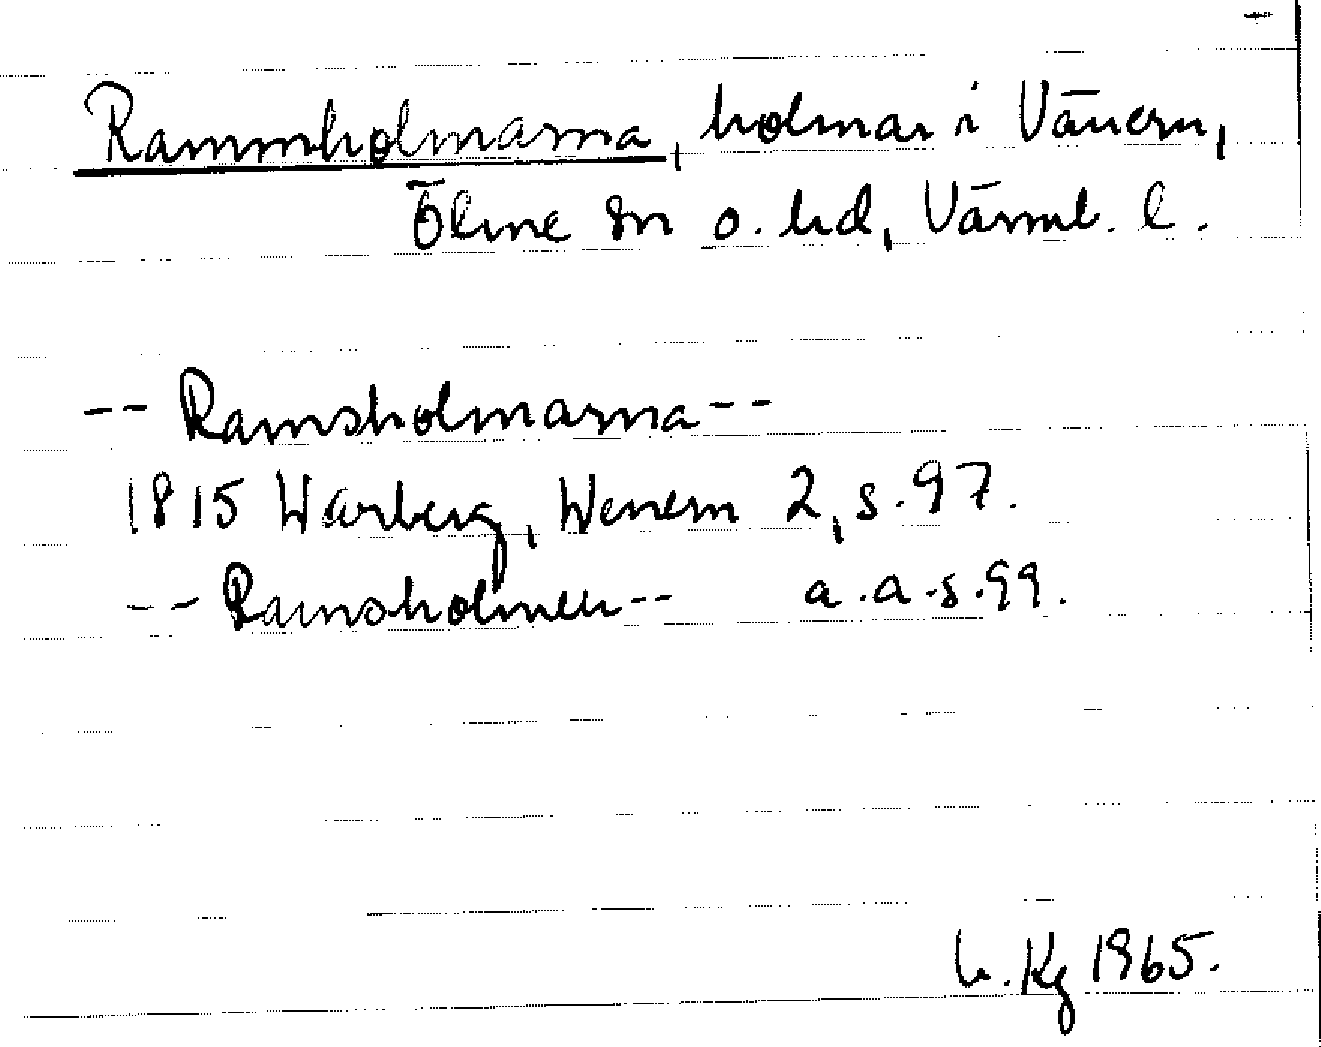 Rammholmarna, holmar i Vänern,
Ölme sn o. hd, Värml. l.
-- Ramsholmarna --
1815 Warberg, Wenern 2, s. 97.
-- Ramsholmen -- a.a.s. 99.
Kg 1965.